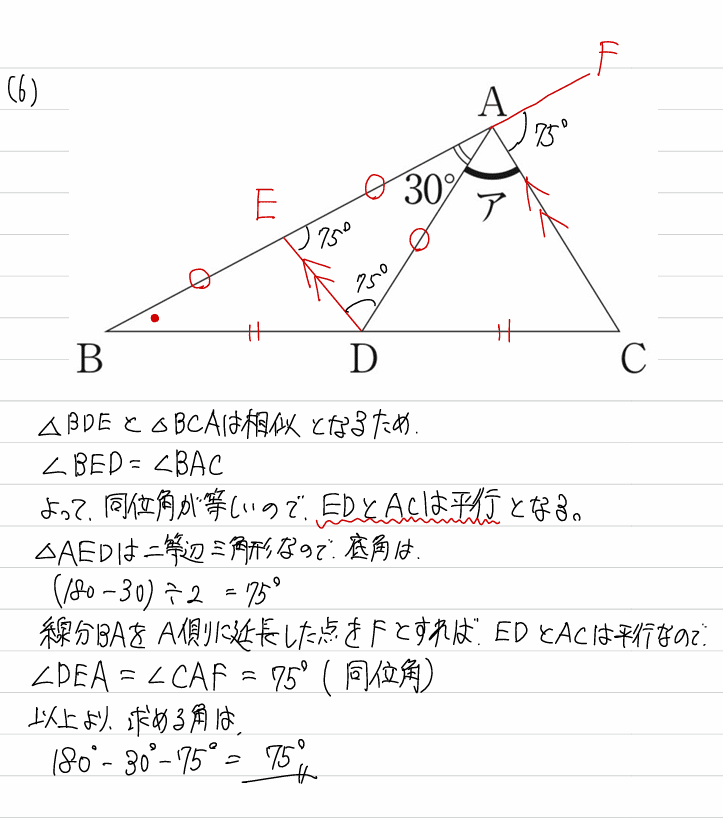 (6)
F
A
75°
30°
ア
E
75°
75°
B
D
C
△BDEと△BCAは相似となるため.
∠BED=∠BAC
よって、同位角が等しいので、EDとACは平行となる。
△AEDは二等辺三角形なので、底角は.
(180-30)÷2 =75°
線分BAをA側に延長した点をFとすれば、EDとACは平行なので.
∠DEA=∠CAF=75°(同位角)
以上より、求める角は、
180°-30°-75°=75°